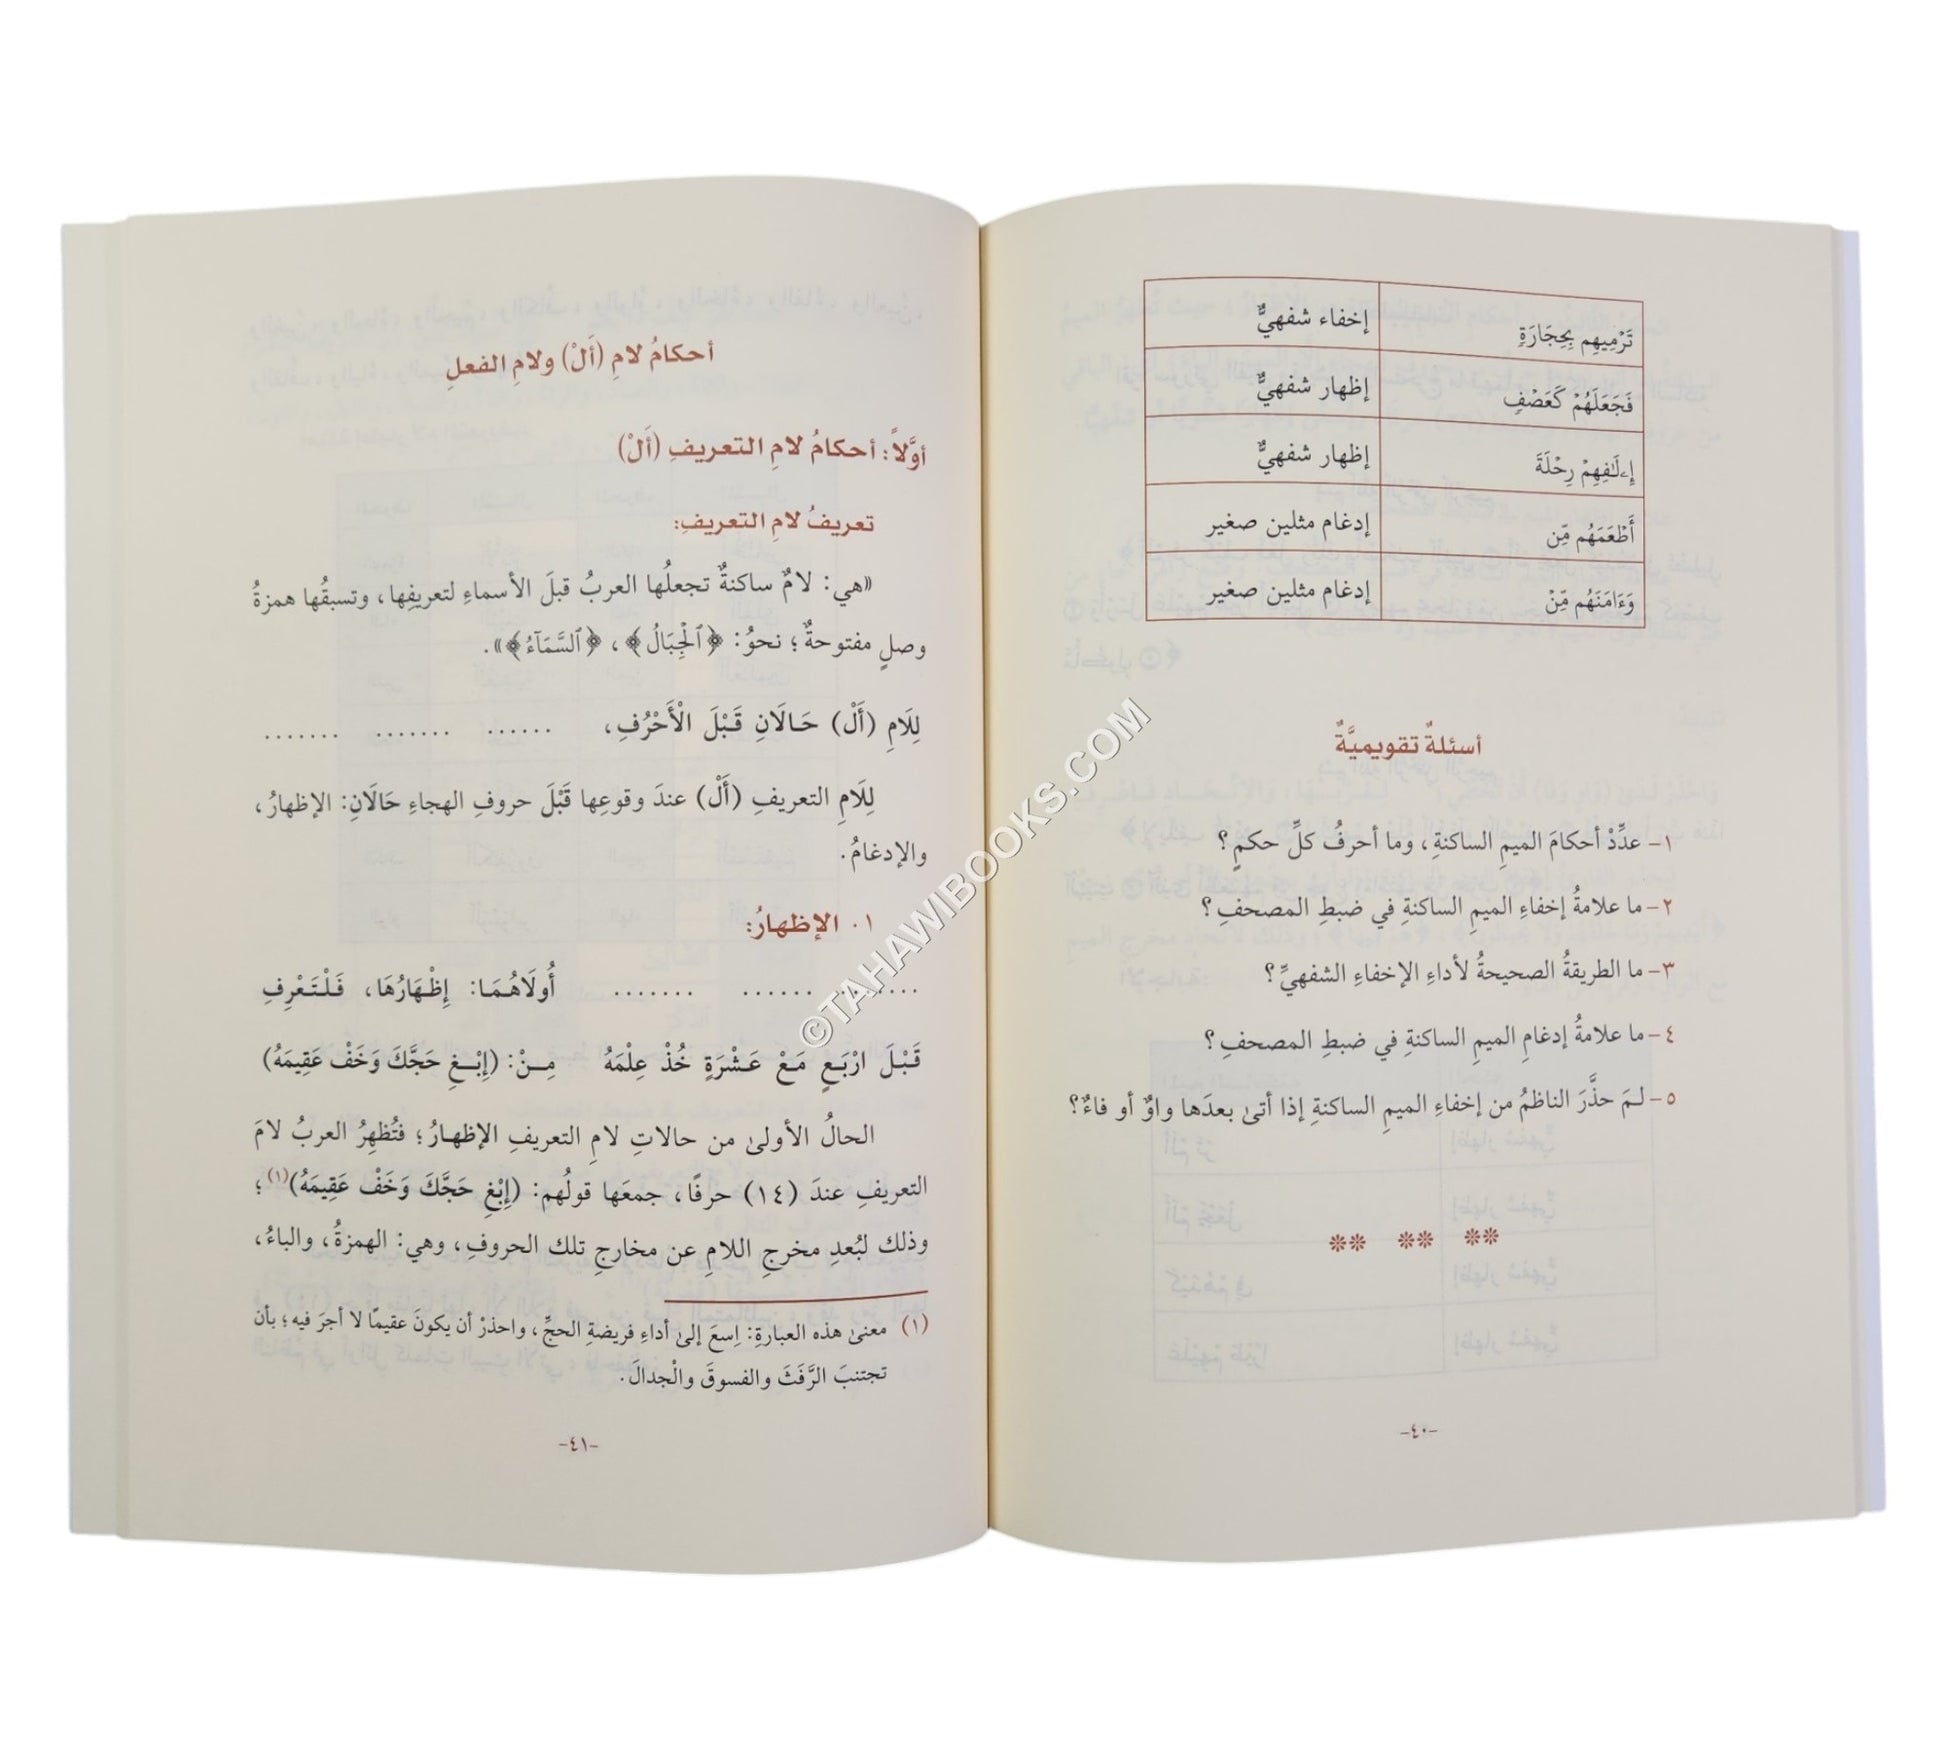 تَرۡمِيهِم بِحِجَارَةٖ إخفاء شفهيٌّ
فَجَعَلَهُمۡ كَعَصۡفٖ إظهار شفهيٌّ
إِۦلَٰفِهِمۡ رِحۡلَةَ إظهار شفهيٌّ
أَطۡعَمَهُم مِّن إدغام مثلين صغير
وَءَامَنَهُم مِّنۡ إدغام مثلين صغير
أسئلةٌ تقويميَّةٌ
١- عدِّدْ أحكامَ الميمِ الساكنةِ، وما أحرفُ كلِّ حكمٍ؟
٢- ما علامةُ إخفاءِ الميمِ الساكنةِ في ضبطِ المصحفِ؟
٣- ما الطريقةُ الصحيحةُ لأداءِ الإخفاءِ الشفهيِّ؟
٤- ما علامةُ إدغامِ الميمِ الساكنةِ في ضبطِ المصحفِ؟
٥- لمَ حذَّرَ الناظمُ من إخفاءِ الميمِ الساكنةِ إذا أتىٰ بعدَها واوٌ أو فاءٌ؟
-٤٠-
أحكامُ لامِ (أَلْ) ولامِ الفعلِ
أوَّلاً: أحكامُ لامِ التعريفِ (أَلْ)
تعريفُ لامِ التعريفِ:
«هي: لامٌ ساكنةٌ تجعلُها العربُ قبلَ الأسماءِ لتعريفِها، وتسبقُها همزةُ
وصلٍ مفتوحةٌ؛ نحوُ: ﴿ٱلۡجِبَالُ﴾، ﴿ٱلسَّمَآءُ﴾».
لِلَامِ (أَلْ) حَالَانِ قَبْلَ الْأَحْرُفِ، ...... ....... .......
لِلَامِ التعريفِ (أَلْ) عندَ وقوعِها قَبْلَ حروفِ الهجاءِ حَالَانِ: الإظهارُ،
والإدغامُ.
١. الإظهارُ:
....... ...... ....... أُولَاهُمَا: إِظْهَارُهَا، فَلْتَعْرِفِ
قَبْلَ ارْبَعٍ مَعْ عَشْرَةٍ خُذْ عِلْمَهُ مِنْ: (إِبْغِ حَجَّكَ وَخَفْ عَقِيمَهُ)
الحالُ الأولىٰ من حالاتِ لامِ التعريفِ الإظهارُ؛ فتُظهِرُ العربُ لامَ
التعريفِ عندَ (١٤) حرفًا، جمعَها قولُهم: (إِبْغِ حَجَّكَ وَخَفْ عَقِيمَهُ)(١)؛
وذلك لبُعدِ مخرجِ اللامِ عن مخارجِ تلك الحروفِ، وهي: الهمزةُ، والباءُ،
(١) معنىٰ هذه العبارةِ: اِسعَ إلىٰ أداءِ فريضةِ الحجِّ، واحذرْ أن يكونَ عقيمًا لا أجرَ فيه؛ بأن
تجتنبَ الرَّفَثَ والفسوقَ والْجدالَ.
-٤١-
©TAHAWIBOOKS.COM